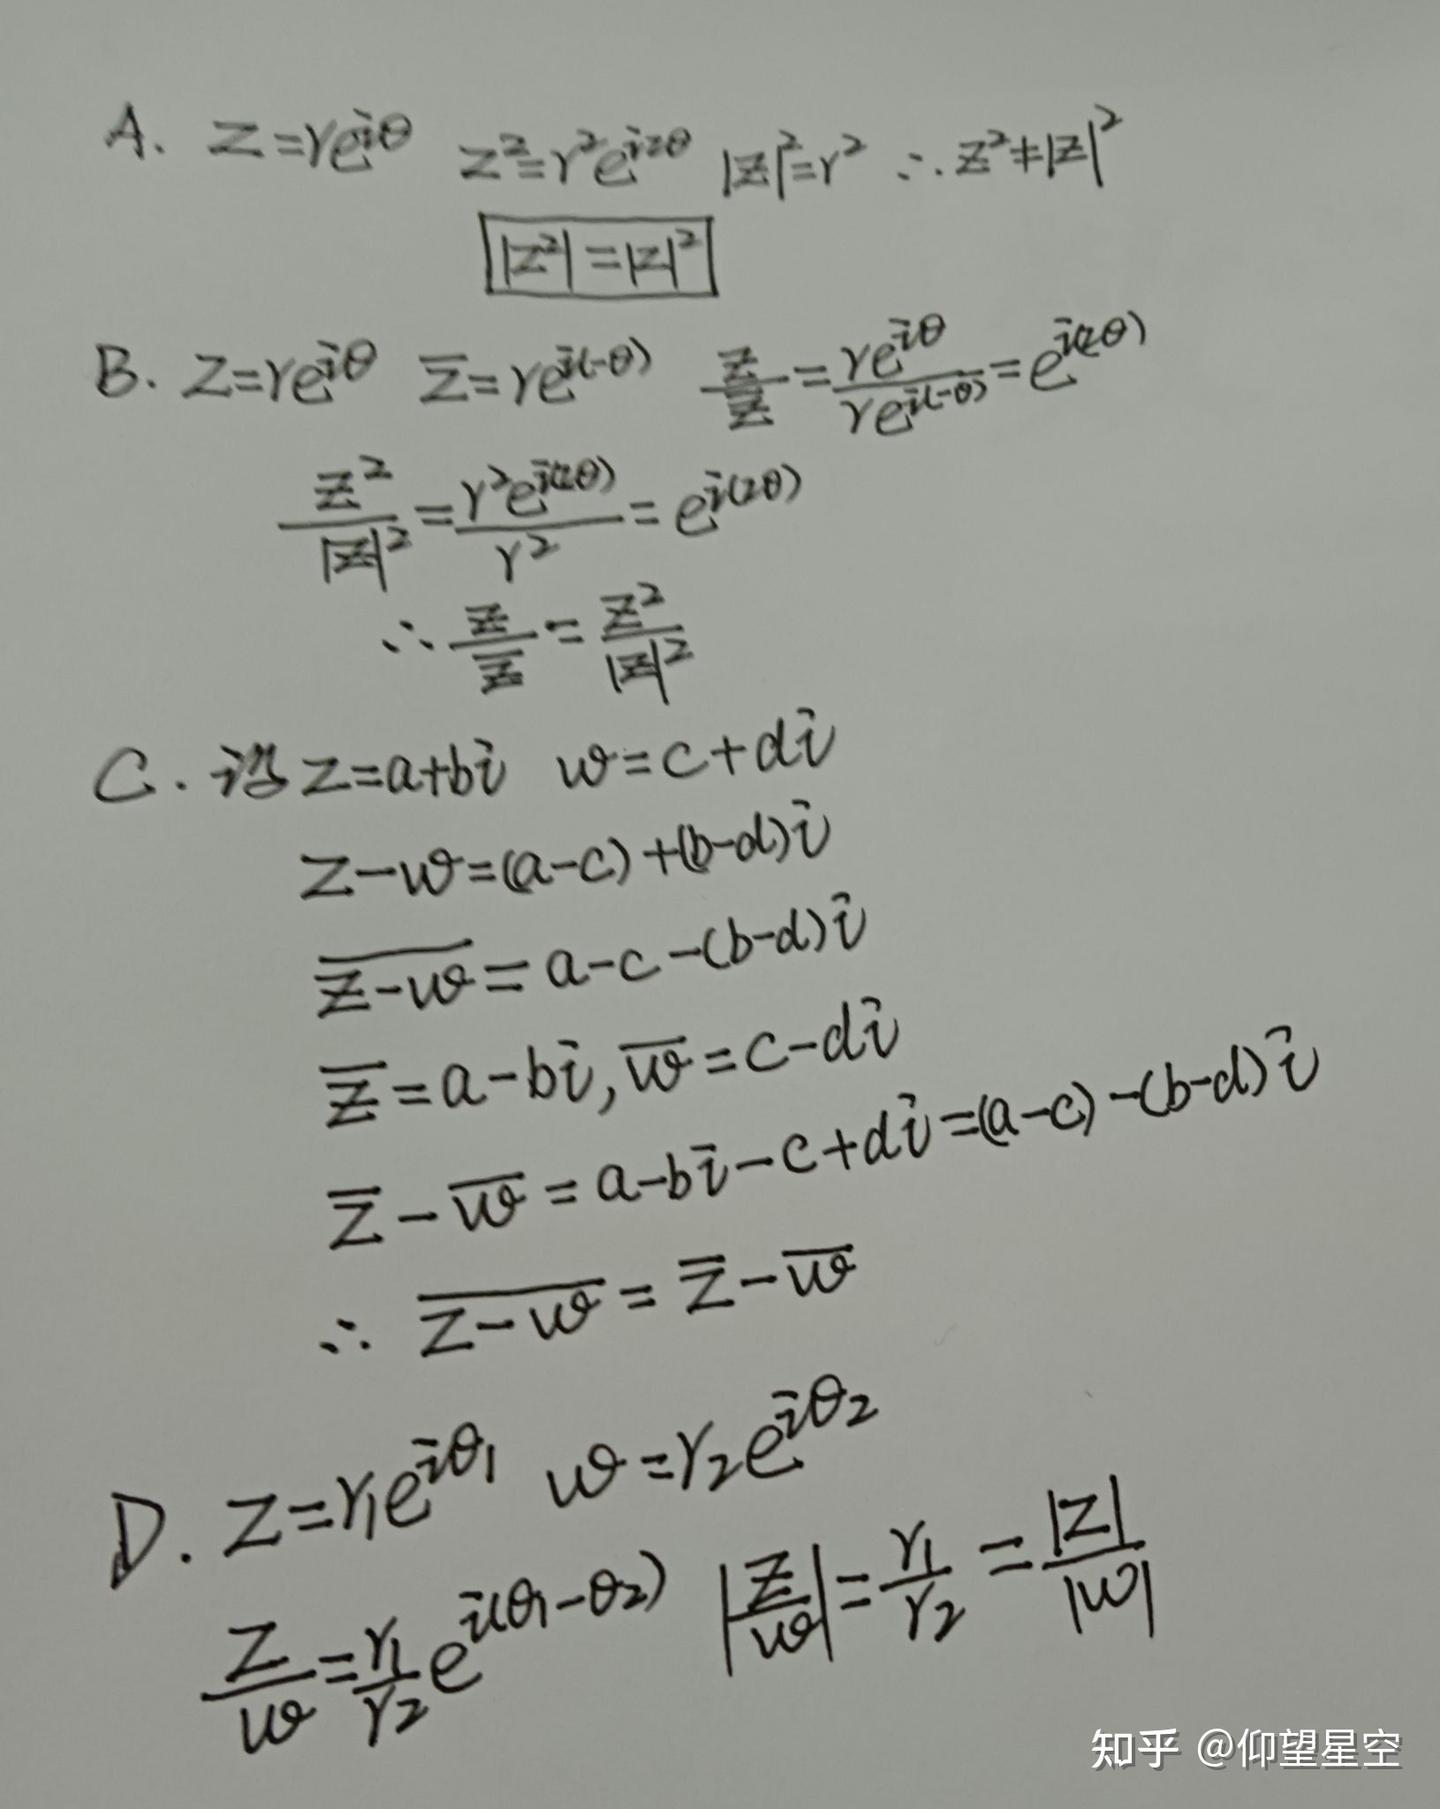 A. z=re^{iθ} z²=r²e^{i2θ} |z|²=r² ∴z²≠|z|²
|z²|=|z|²
B. z=re^{iθ} z̅=re^{i(-θ)} z/z̅=re^{iθ}/re^{i(-θ)}=e^{i(2θ)}
z²/|z|²=r²e^{i(2θ)}/r²=e^{i(2θ)}
∴z/z̅=z²/|z|²
C. 设z=a+bi w=c+di
z-w=(a-c)+(b-d)i
\overline{z-w}=a-c-(b-d)i
z̅=a-bi, w̅=c-di
z̅-w̅=a-bi-c+di=(a-c)-(b-d)i
∴ \overline{z-w}=z̅-w̅
D. z=r₁e^{iθ₁} w=r₂e^{iθ₂}
z/w=r₁/r₂e^{i(θ₁-θ₂)} |z/w|=r₁/r₂=|z|/|w|
知乎 @仰望星空